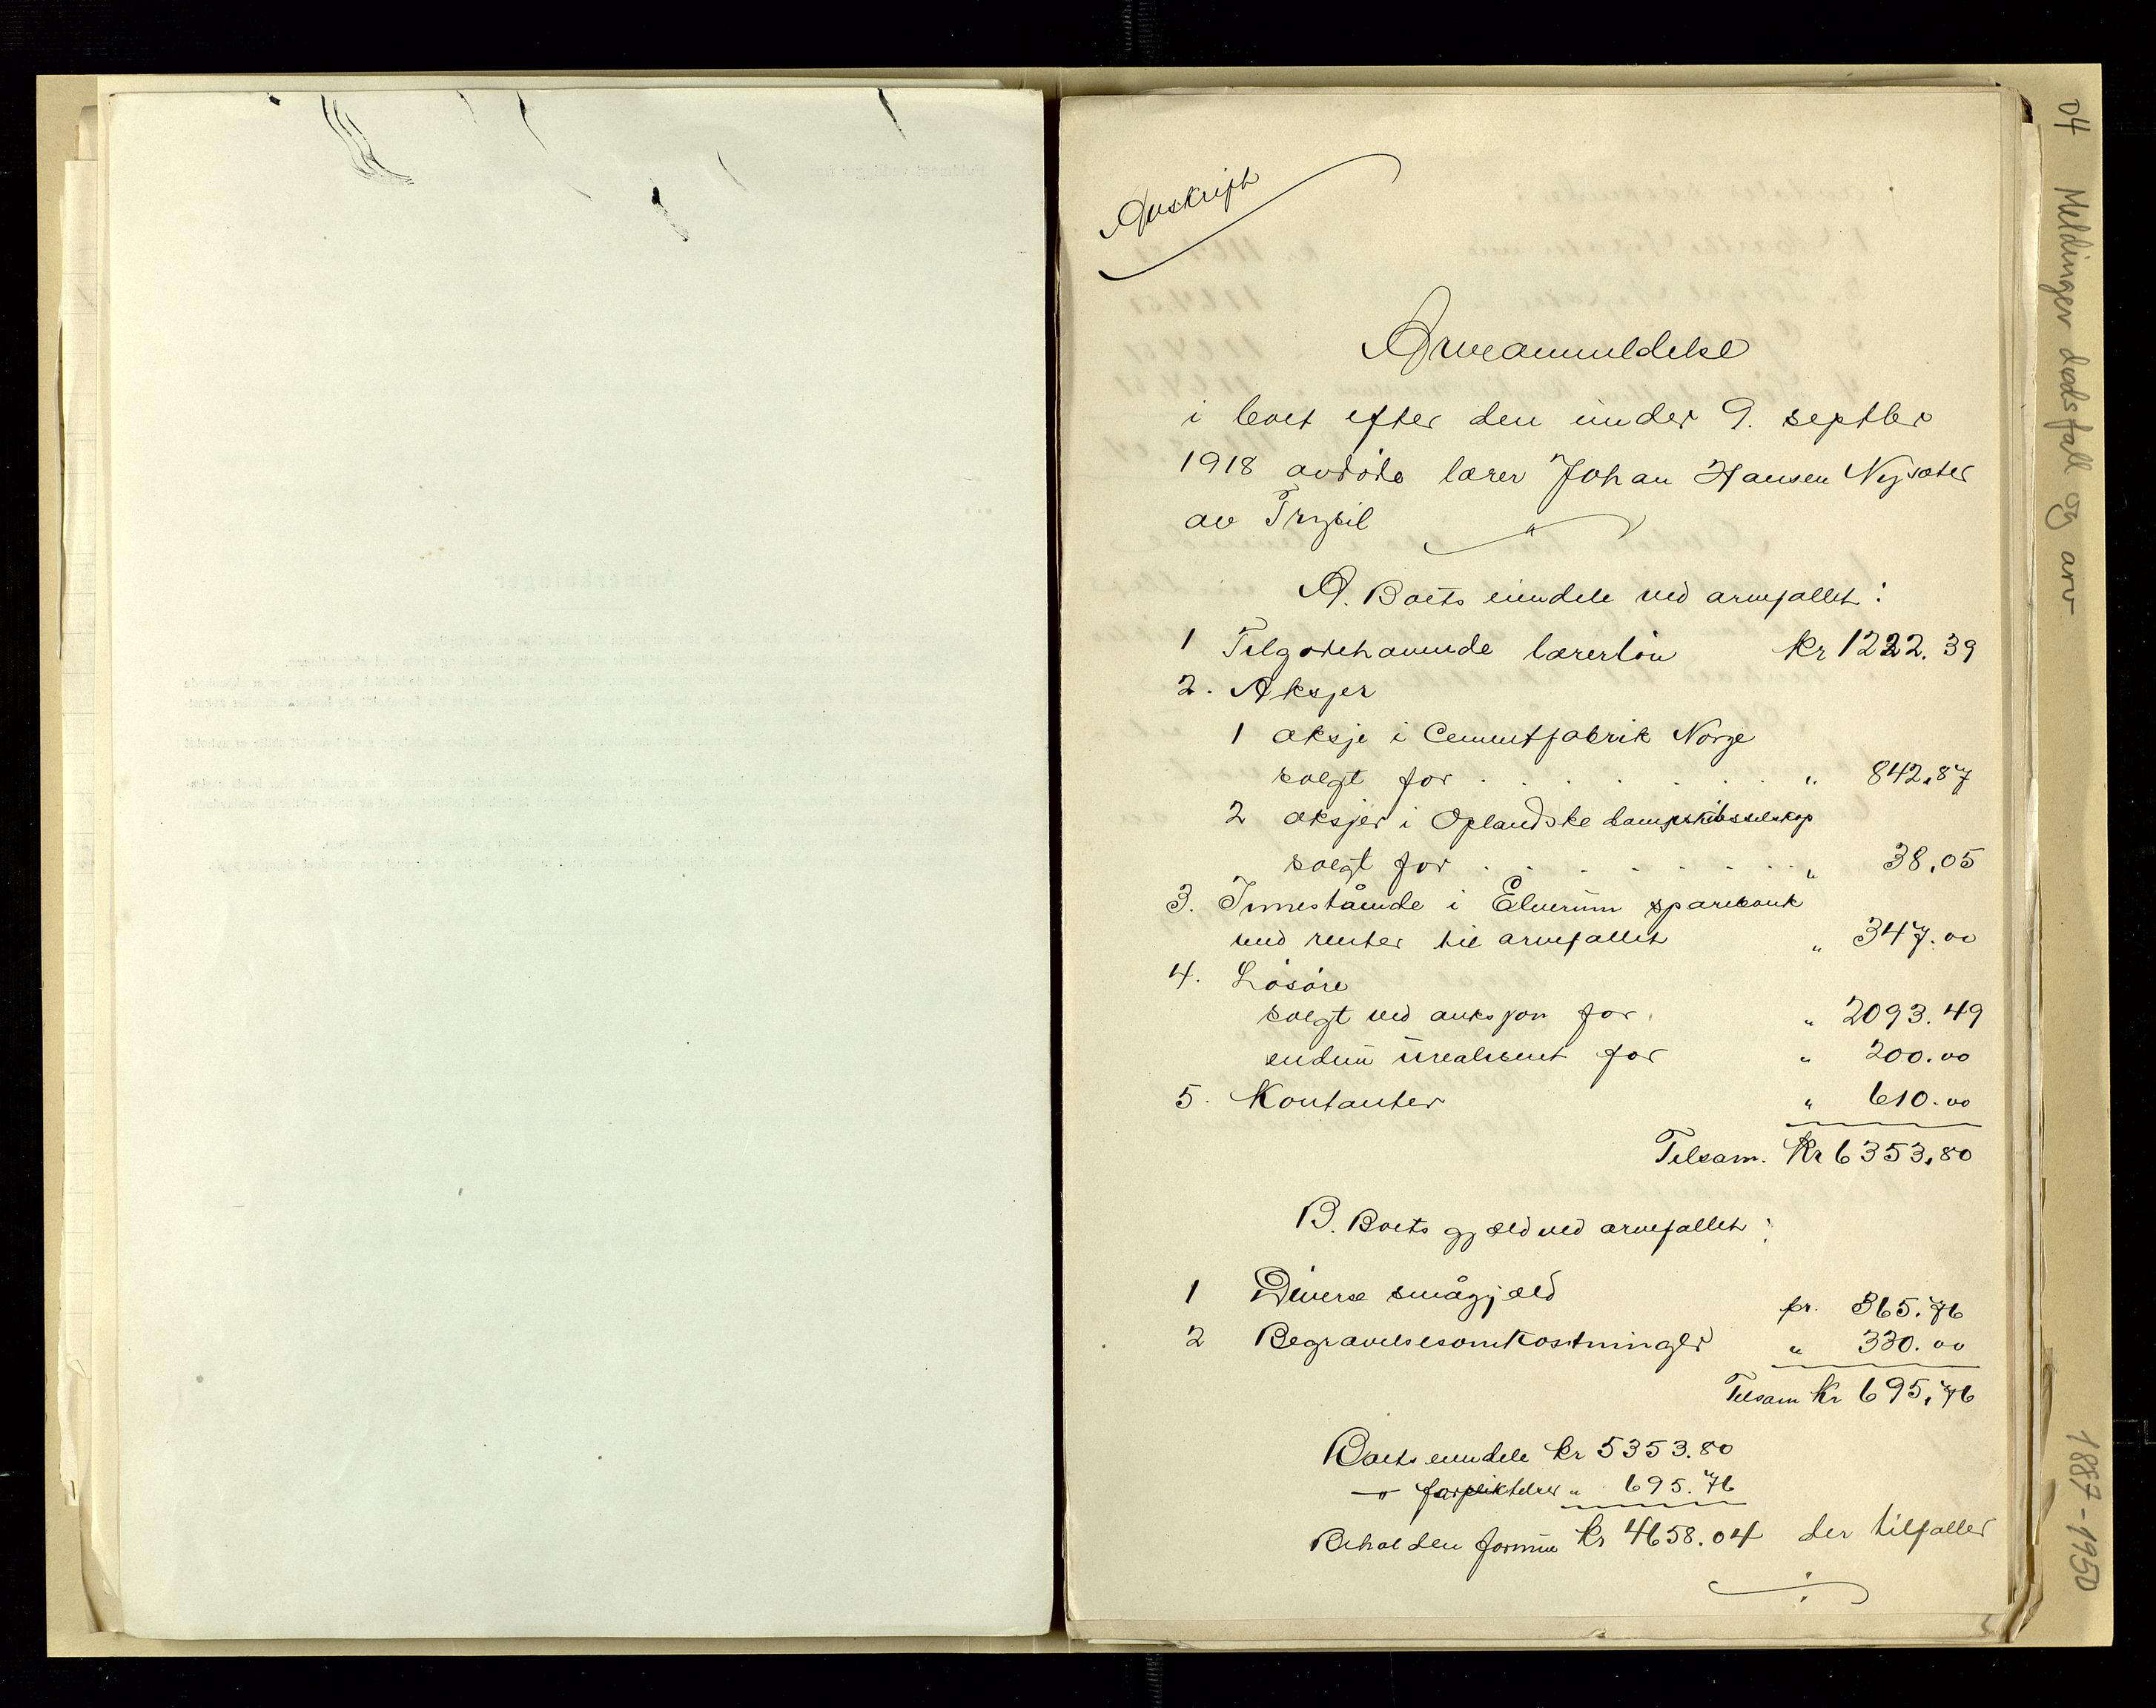 Avskrift
Arveanmeldelse
i boet efter den under 9. septbr
1918 avdøde lærer Johan Hansen Nysæter
av Trysil
A. Boets eiendele ved arvefallet:
1 Tilgodehavende lærerløn kr 1222.39
2. Aksjer
1 aksje i Cementfabrik Norge
solgt for . . . . . . . „ 842.87
2 aksjer i Oplandske dampskibsselskap
solgt for . . . . . . . „ 38.05
3. Innestående i Elverum sparebank
med renter til arvefallet „ 347.00
4. Løsøre
solgt ved auksjon for „ 2093.49
endnu urealisert for „ 200.00
5. Kontanter „ 610.00
Tilsam. Kr 6353.80
B. Boets gjæld ved arvefallet:
1 Diverse smågjæld kr. 365.76
2 Begravelsesomkostninger „ 330.00
Tilsam Kr 695.76
Boets eiendele kr 5353.80
—„— forpliktelser „ 695.76
Beholden formue kr 4658.04 der tilfaller
04 Meldinger dødsfall og arv 1887-1950
Anmerkninger